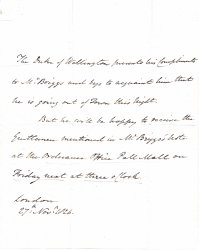 The Duke of Wellington presents his Compliments
to Mr Briggs and begs to acquaint him that
he is going out of Town this Night.
But he will be happy to receive the
Gentlemen mentioned in Mr Briggs's Note
at the Ordnance Office Pall Mall on
Friday next at three o'Clock.
London
27th Novr 1824.